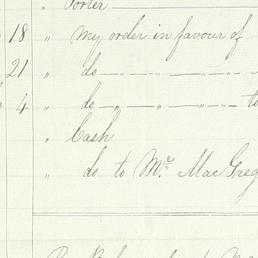 " Porter
18 " My order in favour of
21 " do — " — " —
4 " do — " — " — to
" Cash
" do to Mr. MacGreg